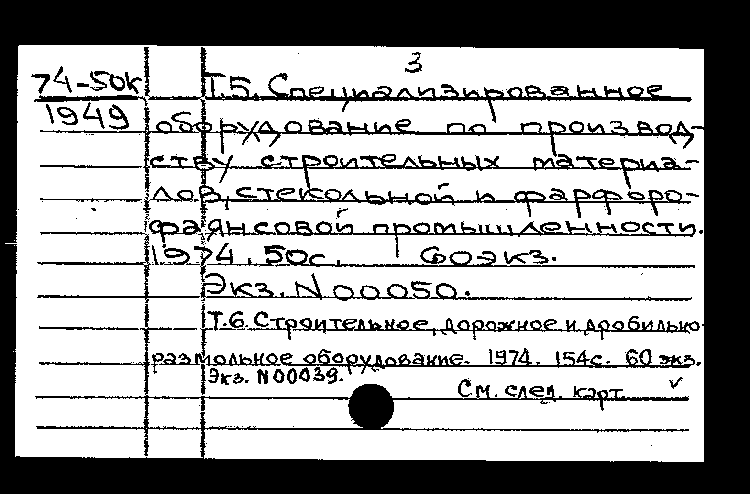 3
74-50к Т.5. Специализированное
1949 оборудование по производ-
ству строительных материа-
лов, стекольной и фарфоро-
фаянсовой промышленности.
1974. 50с. 60экз.
Экз. N 00050.
Т.6. Строительное, дорожное и дробильно-
размольное оборудование. 1974. 154с. 60 экз.
Экз. N 00039.
См. след. карт. ✓